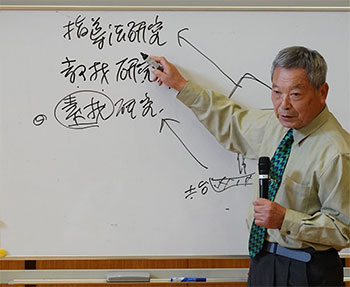 指導法研究
教材研究
◎素材研究
土台